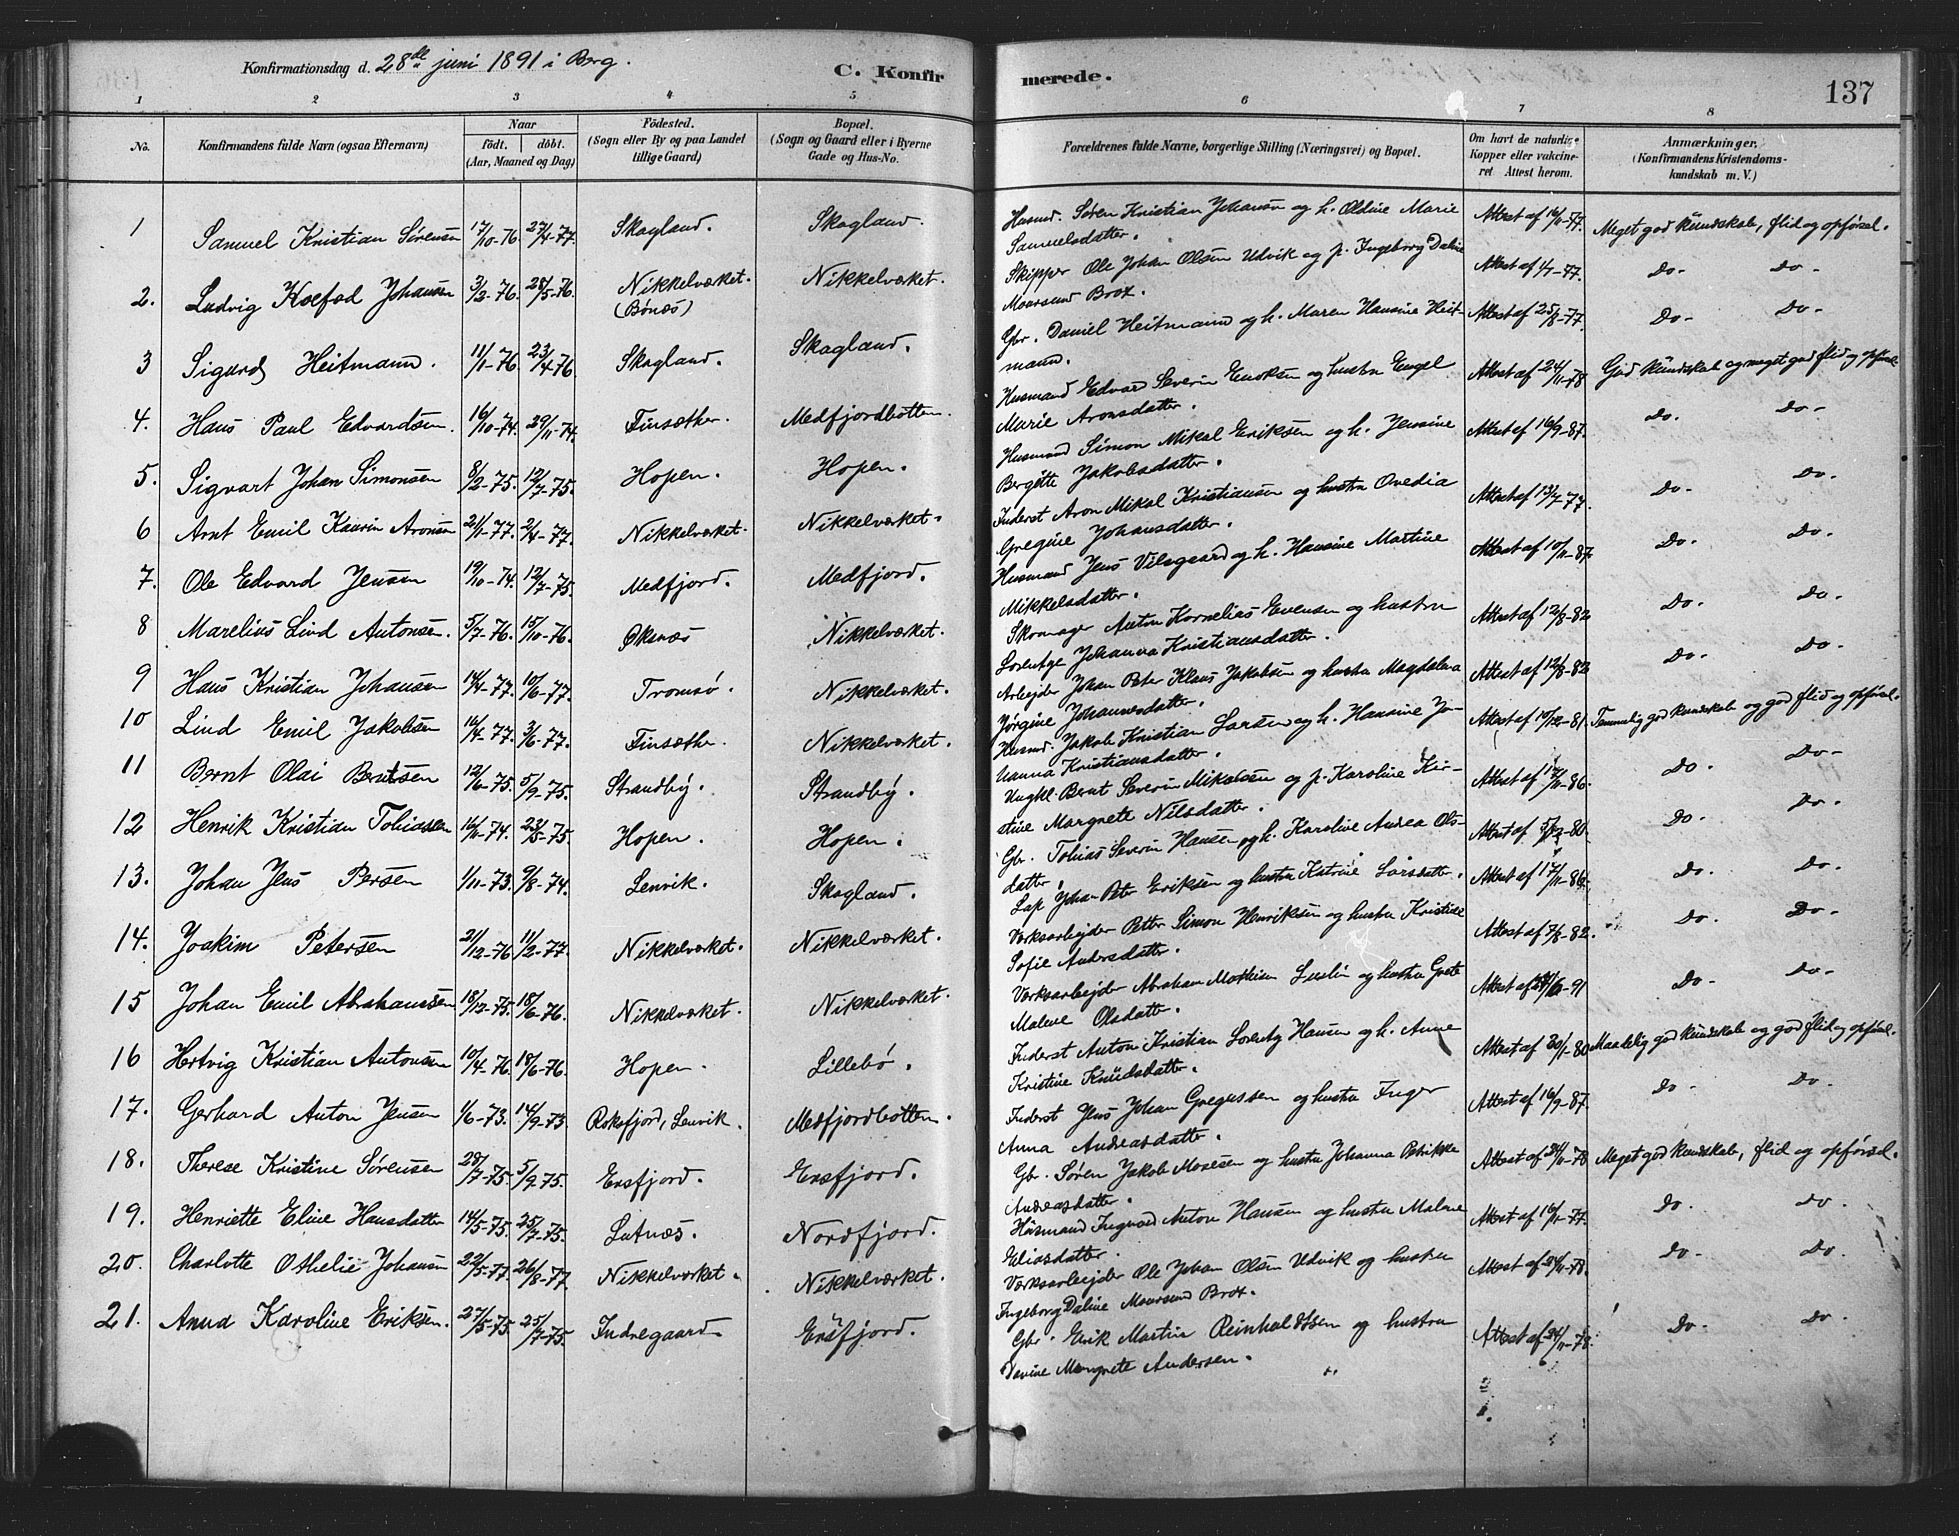 Konfirmationsdag d. 28de juni 1891 i Berg.
C. Konfirmerede.
137
1 2 3 4 5 6 7 8
No.
Konfirmandens fulde Navn (ogsaa Efternavn)
Naar
födt. döbt.
(Aar, Maaned og Dag)
Födested.
(Sogn eller By og paa Landet
tillige Gaard)
Bopæl.
(Sogn og Gaard eller i Byerne
Gade og Hus-No.
Forældrenes fulde Navne, borgerlige Stilling (Næringsvei) og Bopæl.
Om havt de naturlige
Kopper eller vakcine-
ret Attest herom.
Anmærkninger,
(Konfirmandens Kristendoms-
kundskab m. V.)
1 Samuel Kristian Sørensen 17/10-76. 27/4-77. Skagland. Skagland. Husmd. Søren Kristian Johansen og h. Oldine Marie
Samuelsdatter. Attest af 16/11-77. Meget god kundskab, flid og opførsel.
2. Ludvig Koefod Johansen 3/2-76. 28/5-76. Nikkelværket. (Bønæs) Nikkelværket. Skipper Ole Johan Olsen Udvik og p. Ingeborg Daline
Maarsund Brox. Attest af 4/1-77. Do- Do-
3 Sigurd Heitmann. 11/1-76. 23/4-76. Skagland. Skagland. Gbr. Daniel Heitmann og h. Maren Hansine Heit-
mann. Attest af 25/8-77. Do- Do-
4. Hans Paul Edvardsen. 16/10-74. 29/11-74. Finsæther. Medfjordbotten. Husmand Edvar Severin Enoksen og hustru Engel
Marie Aronsdatter. Attest af 24/11-78 God kundskab og meget god flid og opførsel.
5. Sigvart Johan Simonsen 8/2-75. 12/7-75. Hopen. Hopen. Husmand Simon Mikal Eriksen og h. Jensine
Bergitte Jakobsdatter. Attest af 16/9-87. Do. Do-
6 Arnt Emil Kaurin Aronsen 21/1-77. 2/4-77. Nikkelværket. Nikkelværket. Inderst Aron Mikal Kristiansen og hustru Ovedia
Gregine Johansdatter. Attest af 13/7-77. Do- Do.
7. Ole Edvard Jensen 19/10-74. 12/7-75. Medfjord. Medfjord. Husmand Jens Vilsgaard og h. Hansine Martine
Mikkelsdatter. Attest af 10/11-87. Do. Do.
8 Marelius Lind Antonsen. 5/7-76. 15/10-76. Øksnæs Nikkelværket. Skomager Anton Kornelias Evensen og hustru
Lorentze Johanna Kristiansdatter. Attest af 12/8-82 Do. Do.
9 Hans Kristian Johansen 14/4-77. 10/6-77. Tromsø. Nikkelværket. Arbejder Johan Peter Klaus Jakobsen og hustru Magdalena
Jørgine Johannesdatter. Attest af 12/8-82 Do- Do.
10 Lind Emil Jakobsen 14/4-77. 3/6-77. Finsæther. Nikkelværket. Husmd. Jakob Kristian Larsen og h. Hansine Jo-
hanna Kristiansdatter. Attest af 10/12-81. Temmelig god kundskab og god flid og opførsel.
11 Bernt Olai Berntsen 12/6-75. 5/9-75. Strandby. Strandby. Ungkl. Bernt Severin Mikalsen og p. Karoline Kir-
stine Margrete Nilsdatter. Attest af 17/11-86. Do. Do-
12 Henrik Kristian Tobiassen 16/11-74. 23/5-75. Hopen. Hopen. Gbr. Tobias Severin Hansen og h. Karoline Andrea Ols-
datter. Attest af 5/12-80. Do. Do-
13. Johan Jens Persen 1/11-73. 9/8-74. Lenvik. Skagland. Lap Johan Peter Eriksen og hustru Katrine Larsdatter. Attest af 17/11-86. Do. Do.
14. Joakim Petersen 21/12-76 11/2-77. Nikkelværket. Nikkelværket. Værksarbejder Petter Simon Henriksen og hustru Kristine
Sofie Andersdatter. Attest af 7/8-82. Do. Do-
15 Johan Emil Abrahamssen 18/12-75. 18/6-76. Nikkelværket. Nikkelværket. Værksarbejder Abraham Mathisen og hustru Grete
Malene Olsdatter. Attest af -91 Do- Do-
16 Hertvig Kristian Antonsen 10/4-76. 18/6-76. Hopen. Lillebø. Inderst Anton Kristian Lorentz Hansen og h. Anne
Kristine Knudsdatter. Attest af 20/1-80. Maadelig god kundskab og god flid og opførsel.
17. Gerhard Anton Jensen 1/6-73. 14/9-73. Roksfjord, Lenvik. Medfjordbotten. Inderst Jens Johan Gregussen og hustru Inger
Anna Andreasdatter. Attest af 16/9-87. Do- Do.
18. Therese Kristine Sørensen 28/7-75. 5/9-75. Ersfjord. Ersfjord. Gbr. Søren Jakob Mosesen og hustru Johanna Petrikke
Andreasdatter. Attest af 24/11-78 Meget god kundskab, flid og opførsel.
19. Henriette Eline Hansdatter 14/5-75. 25/7-75. Lutnæs. Nordfjord. Husmand Ingvard Anton Hansen og hustru Malene
Eliasdatter. Attest af 16/11-77. Do. Do.
20. Charlotte Othelie Johansen 22/5-77. 26/8-77. Nikkelværket. Nikkelværket. Værksarbejder Ole Johan Olsen Udvik og hustru
Ingeborg Daline Maarsund Brox. Attest af 24/11-78. Do- Do.
21. Anna Karoline Eriksen. 27/5-75. 25/7-75. Indregaard. Ersfjord. Gbr. Erik Martin Reinholdtsen og hustru
Davine Margrete Andersen. Attest af 24/11-78. Do- Do-